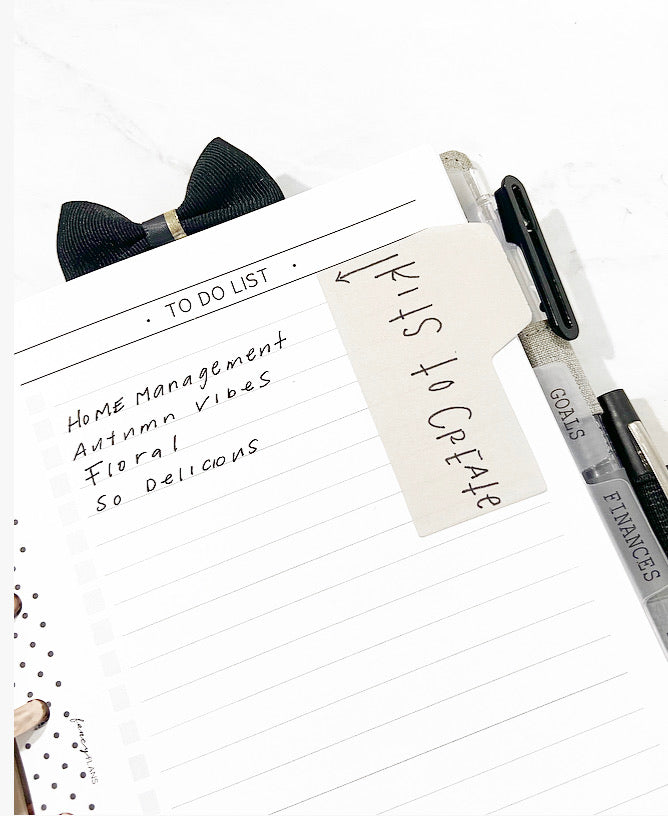 · TO DO LIST ·
HOME Management
Autumn vibes
Floral
So Delicious
Kits to Create
GOALS
FINANCES
fancyPLANS